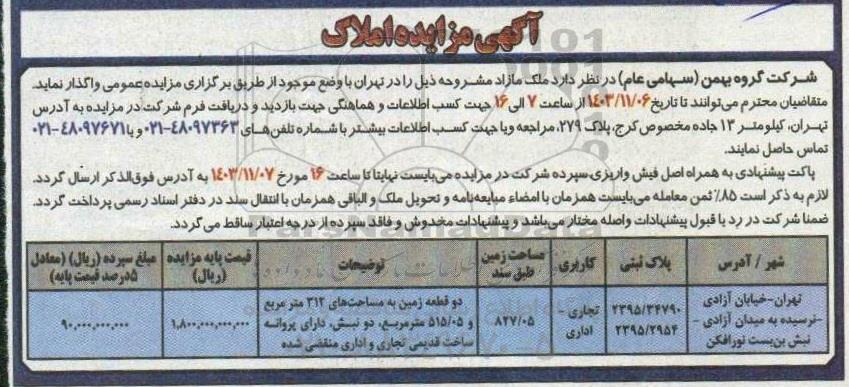 آگهی مزایده املاک
شرکت گروه بهمن (سهامی عام) در نظر دارد ملک مازاد مشروحه ذیل را در تهران با وضع موجود از طریق برگزاری مزایده عمومی واگذار نماید.
متقاضیان محترم می‌توانند تا تاریخ ۱۴۰۳/۱۱/۰۶ از ساعت ۷ الی ۱۶ جهت کسب اطلاعات و هماهنگی جهت بازدید و دریافت فرم شرکت در مزایده به آدرس
تهران، کیلومتر ۱۳ جاده مخصوص کرج، پلاک ۲۷۹، مراجعه و یا جهت کسب اطلاعات بیشتر با شماره تلفن‌های ۴۸۰۹۷۳۶۳-۰۲۱ و یا ۴۸۰۹۷۶۷۱-۰۲۱
تماس حاصل نمایند.
پاکت پیشنهادی به همراه اصل فیش واریزی سپرده شرکت در مزایده می‌بایست نهایتا تا ساعت ۱۶ مورخ ۱۴۰۳/۱۱/۰۷ به آدرس فوق‌الذکر ارسال گردد.
لازم به ذکر است ۸۵٪ ثمن معامله می‌بایست همزمان با امضاء مبایعه‌نامه و تحویل ملک و الباقی همزمان با انتقال سند در دفتر اسناد رسمی پرداخت گردد.
ضمنا شرکت در رد یا قبول پیشنهادات واصله مختار می‌باشد و پیشنهادات مخدوش و فاقد سپرده از درجه اعتبار ساقط می‌گردد.
شهر / آدرس
پلاک ثبتی
کاربری
مساحت زمین
طبق سند
توضیحات
قیمت پایه مزایده
(ریال)
مبلغ سپرده (ریال) (معادل
۵درصد قیمت پایه)
تهران-خیابان آزادی
-نرسیده به میدان آزادی -
نبش بن‌بست نورافکن
۲۳۹۵/۳۴۷۹۰
۲۳۹۵/۲۹۵۴
تجاری -
اداری
۸۲۷/۰۵
دو قطعه زمین به مساحت‌های ۳۱۲ متر مربع
و ۵۱۵/۰۵ مترمربع، دو نبش، دارای پروانه
ساخت قدیمی تجاری و اداری منقضی شده
۱,۸۰۰,۰۰۰,۰۰۰,۰۰۰
۹۰,۰۰۰,۰۰۰,۰۰۰